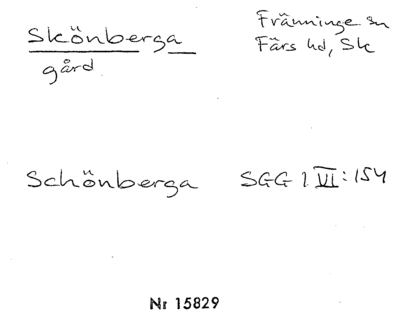 Skönberga
gård
Fränninge sn
Färs hd, Sk
Schönberga SGG 1 VI:154
Nr 15829